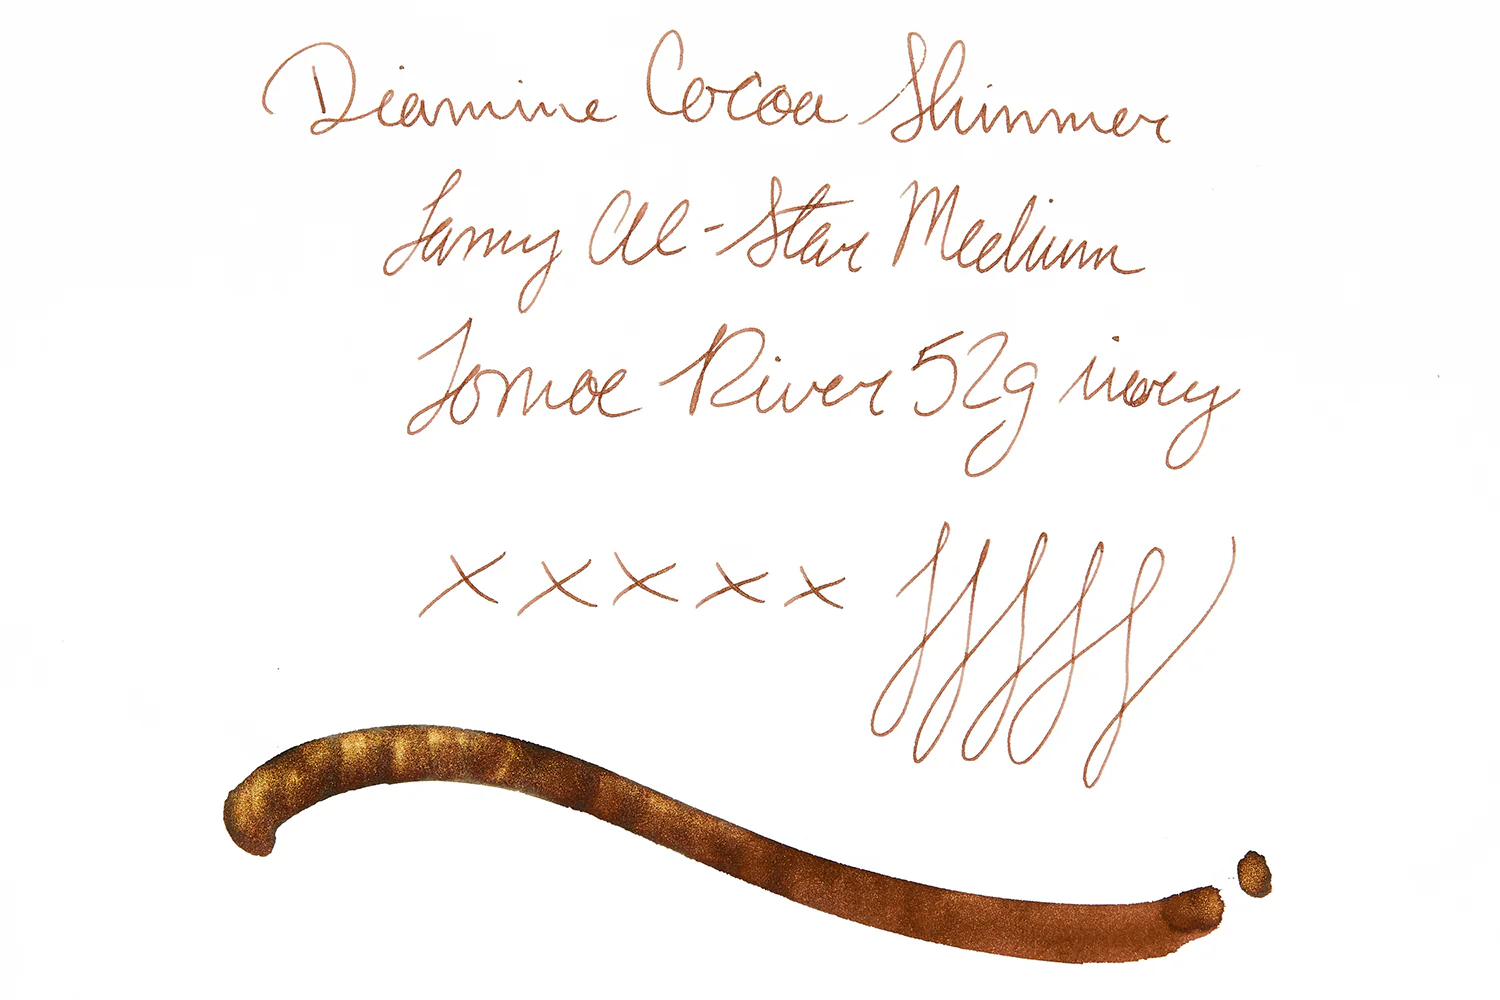 Diamine Cocoa Shimmer
Lamy Al-Star Medium
Tomoe River 52g ivory
x x x x x